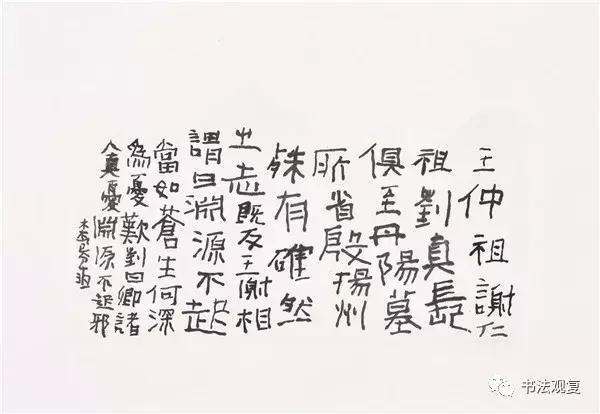 王仲祖謝仁
祖劉真長
俱至丹陽墓
所省殷揚州
殊有確然
之志既反王謝相
謂曰淵源不起
當如蒼生何深
為憂歎劉曰卿諸
人真憂淵源不起邪
书法观复